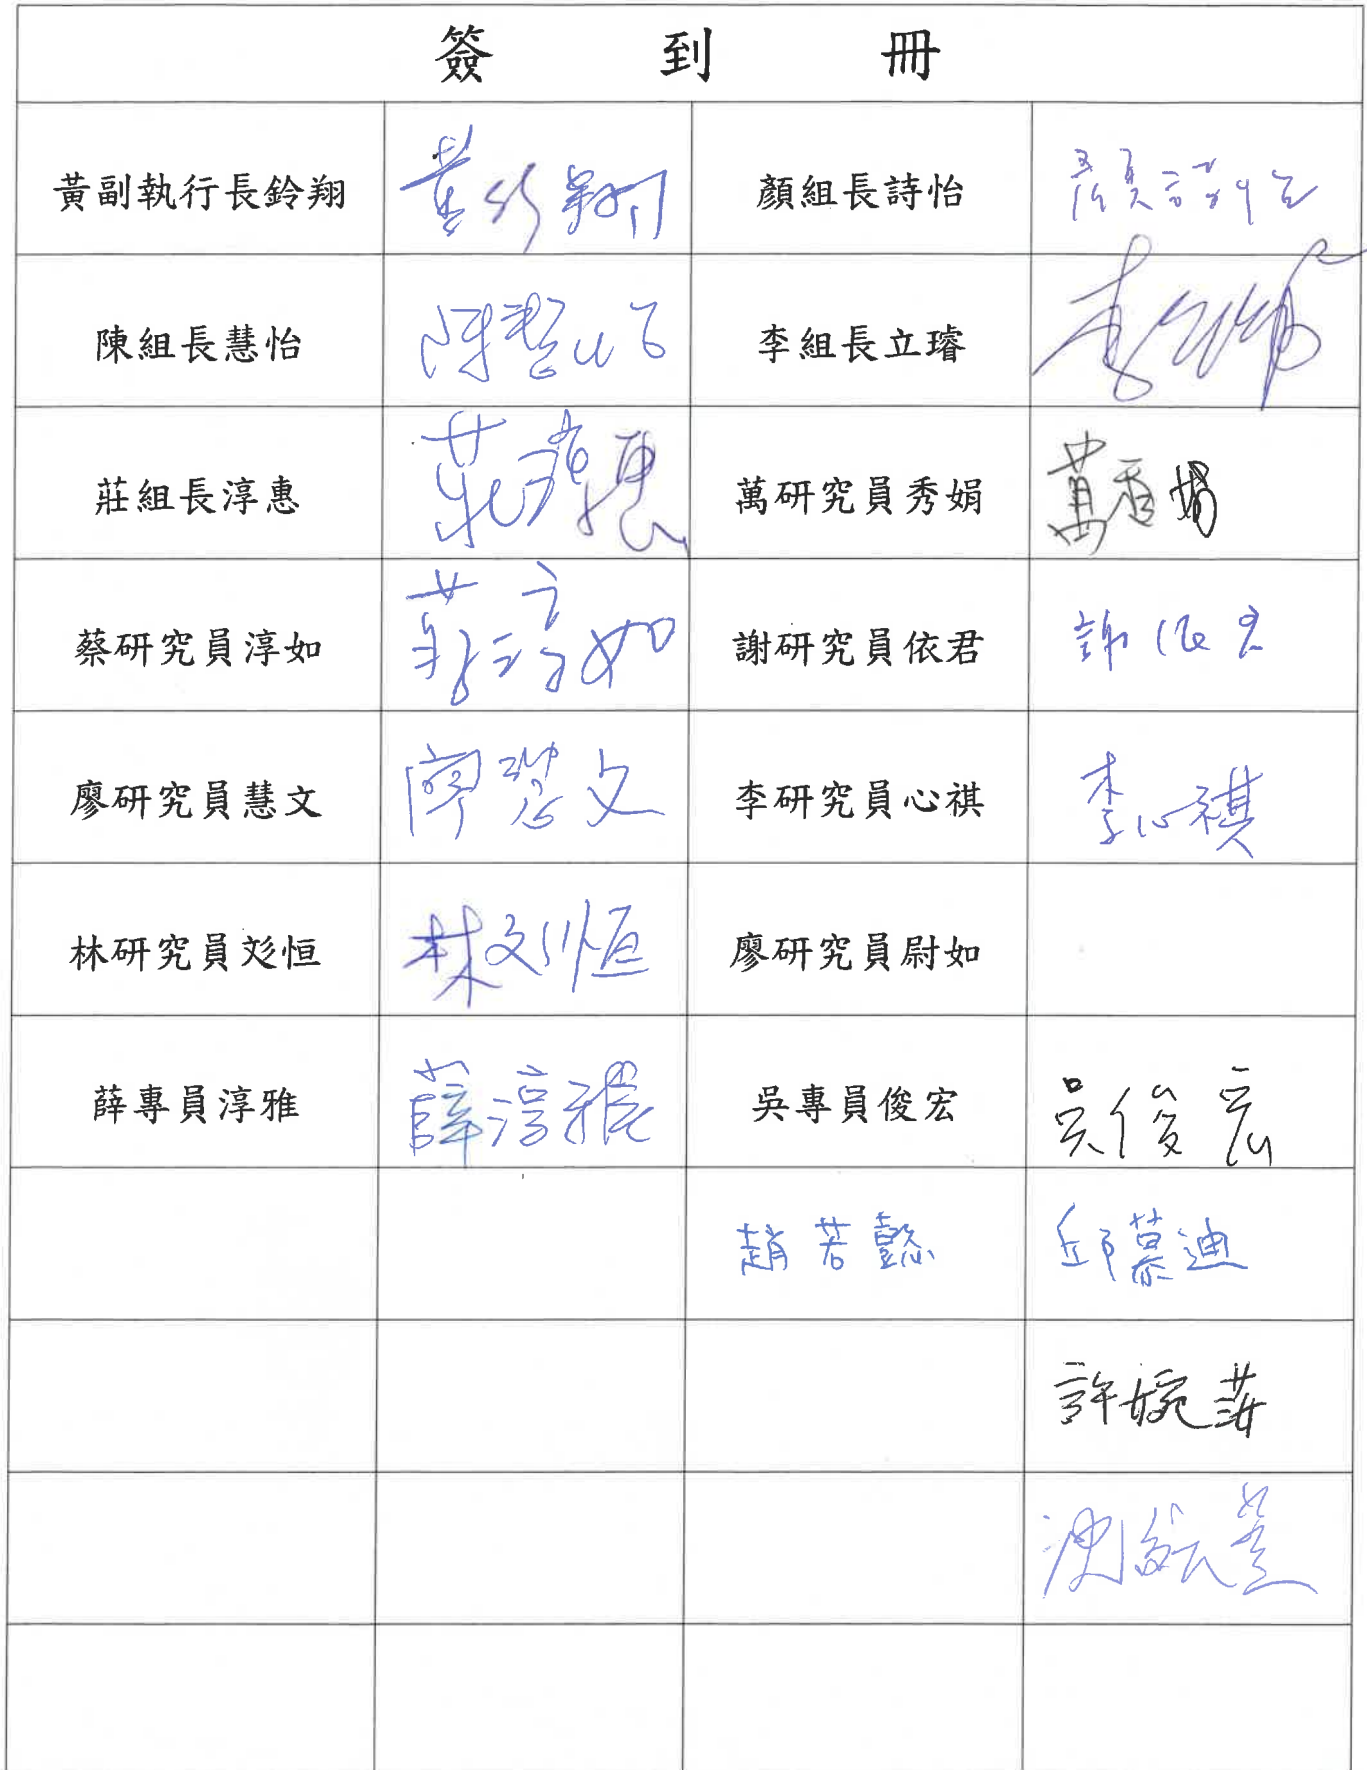 簽到冊
黃副執行長鈴翔 黃鈴翔 顏組長詩怡 顏詩怡
陳組長慧怡 陳慧怡 李組長立璿 李立璿
莊組長淳惠 莊淳惠 萬研究員秀娟 萬秀娟
蔡研究員淳如 蔡淳如 謝研究員依君 謝依君
廖研究員慧文 廖慧文 李研究員心祺 李心祺
林研究員彣恒 林彣恒 廖研究員尉如
薛專員淳雅 薛淳雅 吳專員俊宏 吳俊宏
趙若懿 邱慕迪
許婉